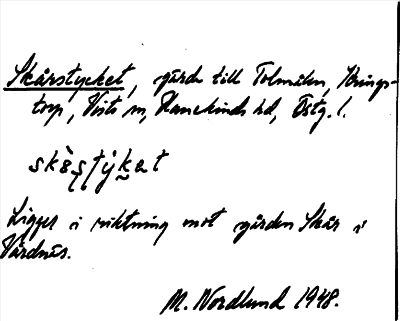 Skärstycket, gärde till Tolmålen, Krings-
torp, Vists sn, Hanekinds hd, Östg. l.
Ligger i riktning mot gården Skär i
Vårdnäs.
M. Nordlund 1948.